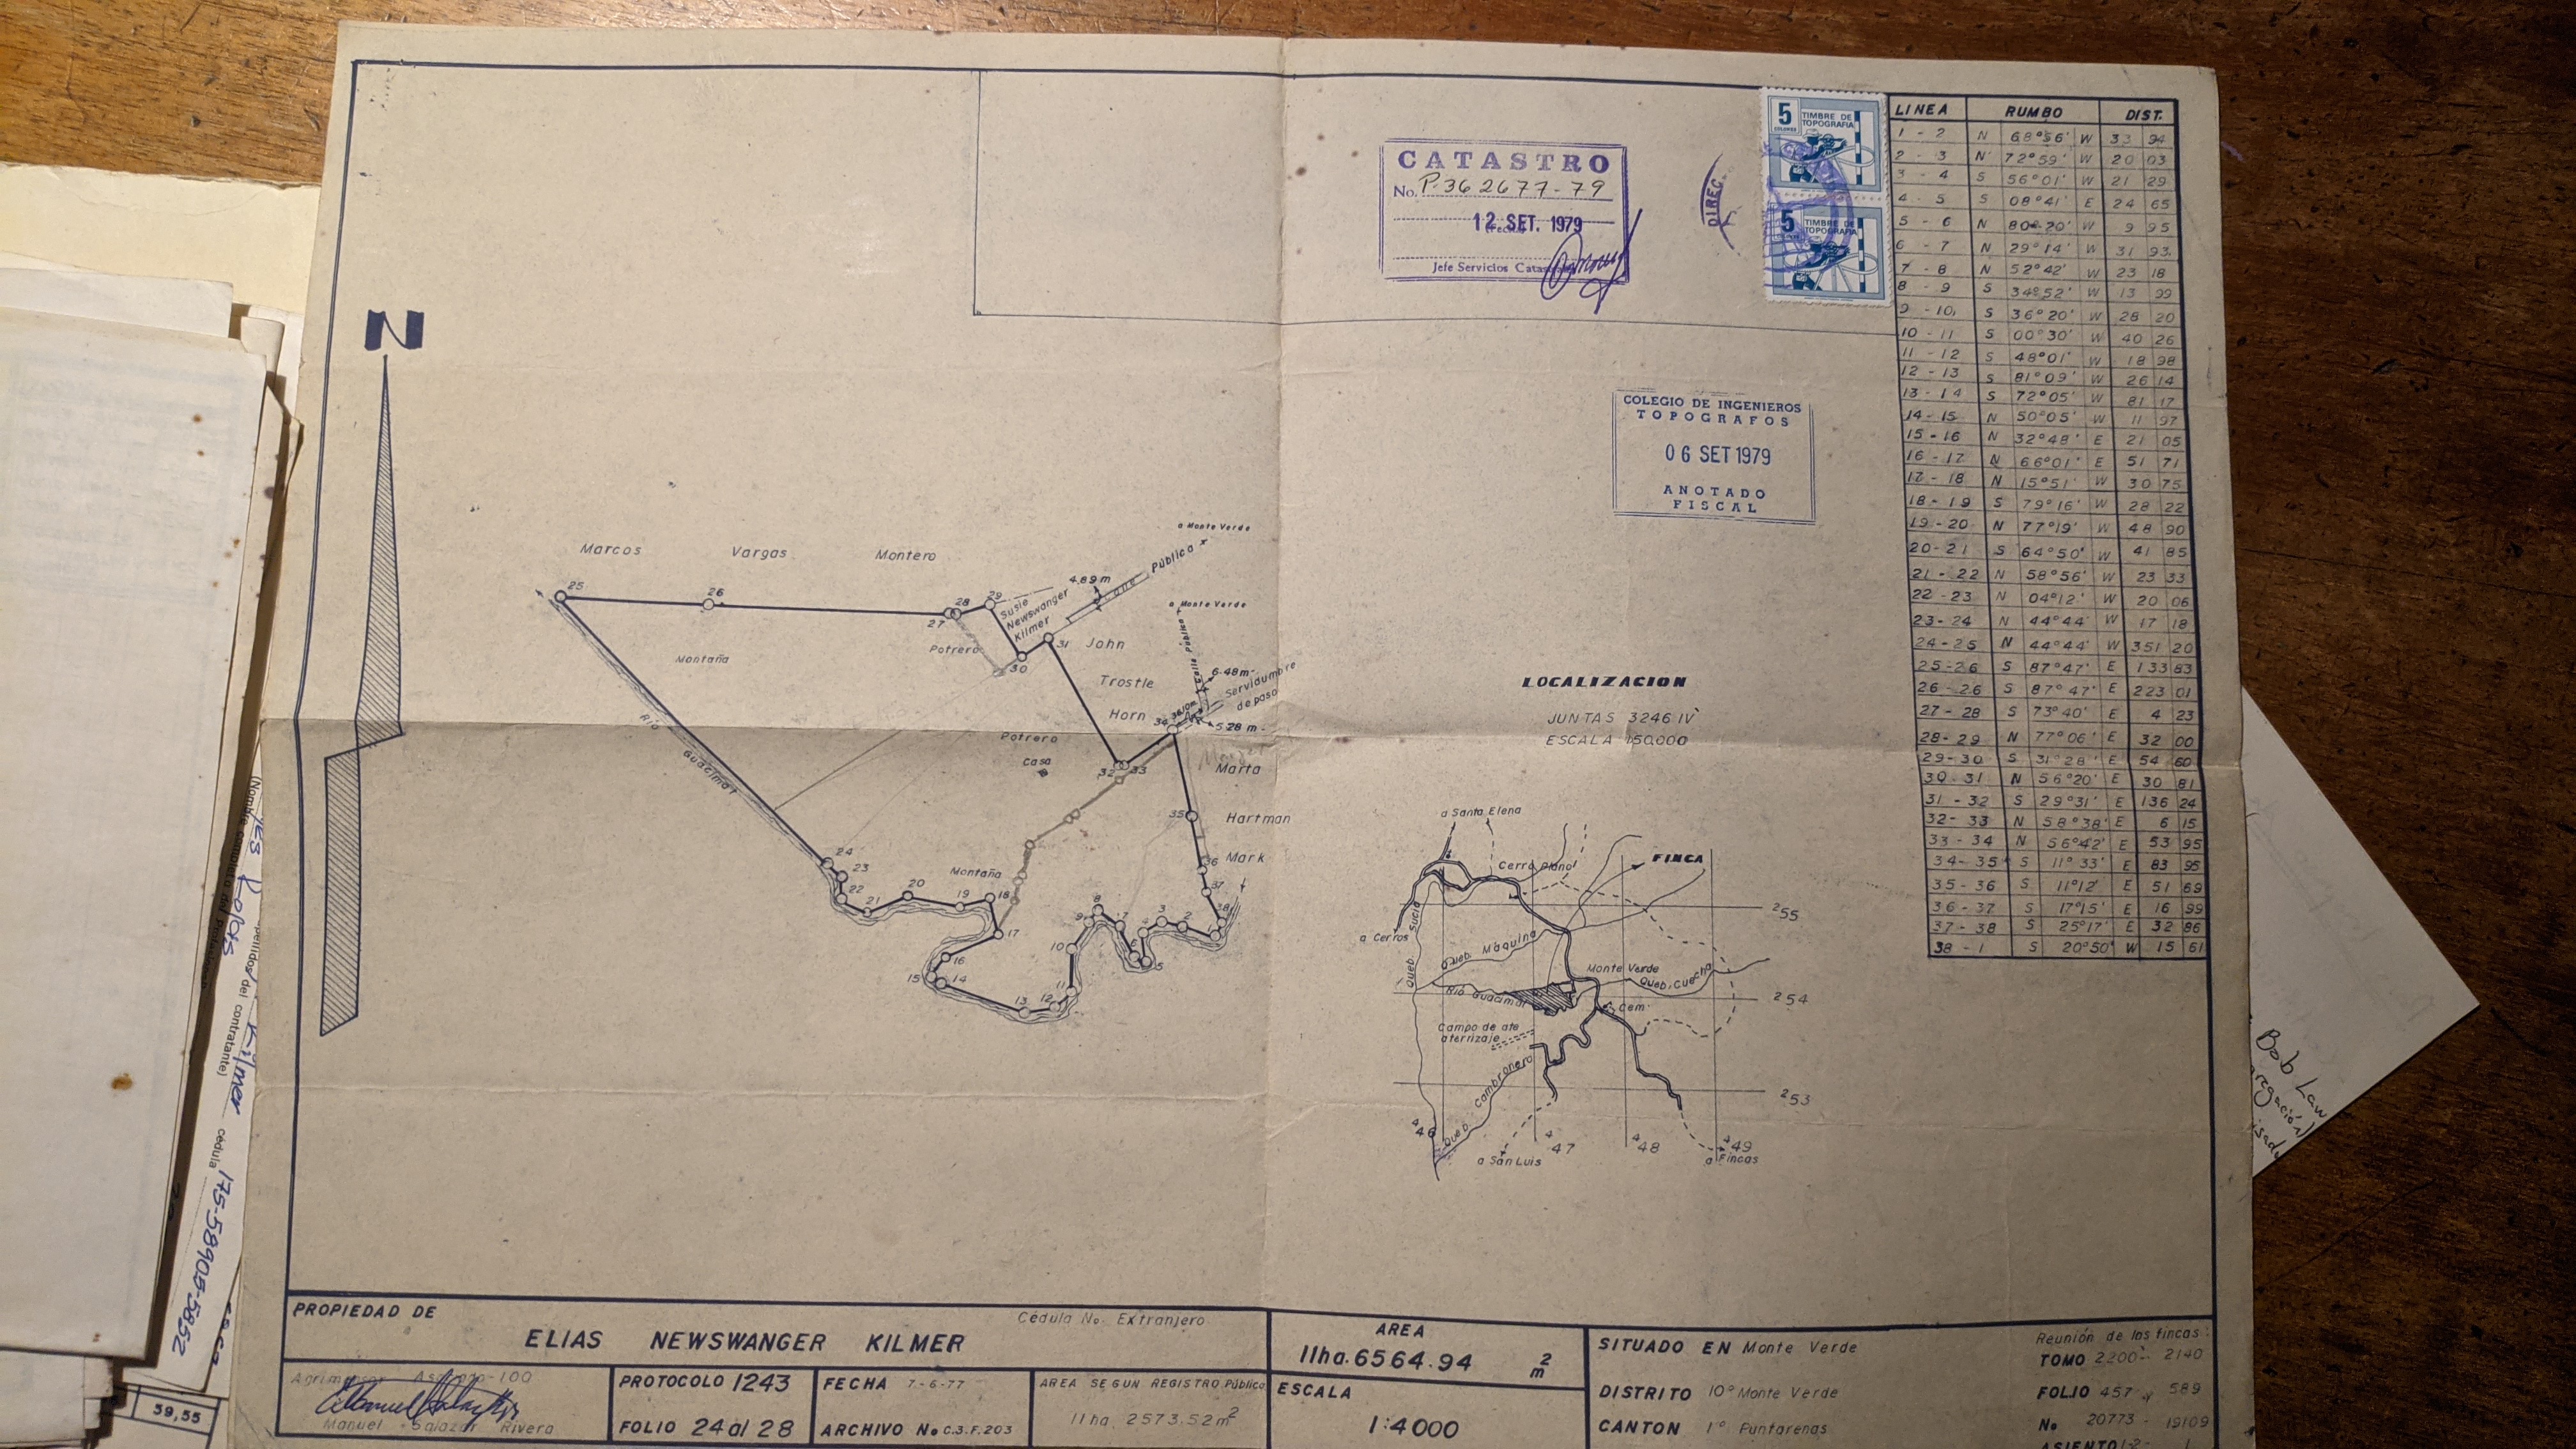 CATASTRO
No. P-362677-79
12. SET. 1979
Jefe Servicios
DIREC.
5 COLONES TIMBRE DE TOPOGRAFIA
5 TIMBRE DE TOPOGRAFIA
COLEGIO DE INGENIEROS
TOPOGRAFOS
06 SET 1979
ANOTADO
FISCAL
LINEA RUMBO DIST.
1 - 2 N 68°56' W 33 94
2 - 3 N 72°59' W 20 03
3 - 4 S 56°01' W 21 29
4 - 5 S 08°41' E 24 65
5 - 6 N 80°20' W 9 95
6 - 7 N 29°14' W 31 93
7 - 8 N 52°42' W 23 18
8 - 9 S 34°52' W 13 99
9 - 10 S 36°20' W 28 20
10 - 11 S 00°30' W 40 26
11 - 12 S 48°01' W 18 98
12 - 13 S 81°09' W 26 14
13 - 14 S 72°05' W 81 17
14 - 15 N 50°05' W 11 97
15 - 16 N 32°48' E 21 05
16 - 17 N 66°01' E 51 71
17 - 18 N 15°51' W 30 75
18 - 19 S 79°16' W 28 22
19 - 20 N 77°19' W 48 90
20 - 21 S 64°50' W 41 85
21 - 22 N 58°56' W 23 33
22 - 23 N 04°12' W 20 06
23 - 24 N 44°44' W 17 18
24 - 25 N 44°44' W 351 20
25 - 26 S 87°47' E 133 83
26 - 26 S 87°47' E 223 01
27 - 28 S 73°40' E 4 23
28 - 29 N 77°06' E 32 00
29 - 30 S 31°28' E 54 60
30 - 31 N 56°20' E 30 81
31 - 32 S 29°31' E 136 24
32 - 33 N 58°38' E 6 15
33 - 34 N 56°42' E 53 95
34 - 35 S 11°33' E 83 95
35 - 36 S 11°12' E 51 69
36 - 37 S 17°15' E 16 99
37 - 38 S 25°17' E 32 86
38 - 1 S 20°50' W 15 61
N
a Monte Verde
Calle Pública
4.89 m
Marcos Vargas Montero
25
26
27
28
29
Susie
Newswanger
Kilmer
a Monte Verde
Calle Pública
Montaña
Potrero
30
31
John
Trostle
Horn
6.48m
Servidumbre
de paso
34
5.28 m
Río Guacimal
Potrero
Casa
32
33
Marta
Hartman
Mark
35
36
37
38
24
23
22
21
20
19
18
Montaña
17
16
15
14
13
12
11
10
9
8
7
6
5
4
3
2
LOCALIZACION
JUNTAS 3246 IV
ESCALA 1:50,000
a Santa Elena
Cerro Plano
FINCA
a Cerros
Queb. Sucia
Queb. Máquina
Monte Verde
Queb. Cuecha
Río Guacimal
Cem.
Campo de ate
aterrizaje
Queb. Cambronero
a San Luis
a Fincas
255
254
253
446
447
448
449
PROPIEDAD DE
Cédula No. Extranjero
ELIAS NEWSWANGER KILMER
Agrimensor
Manuel Salazar Rivera
PROTOCOLO 1243
FOLIO 24 al 28
FECHA 7-6-77
ARCHIVO No C.3.F.203
AREA SEGUN REGISTRO Público
11ha. 2573.52m2
AREA
11ha.6564.94 m2
ESCALA
1:4000
SITUADO EN Monte Verde
DISTRITO 10° Monte Verde
CANTON 1° Puntarenas
Reunión de las fincas:
TOMO 2200 - 2140
FOLIO 457 y 589
No 20773 - 19109
ASIENTO
(Nombre completo del
apellidos del contratante)
Kilmer cédula 175-58905-5852
39,55
Bob Law